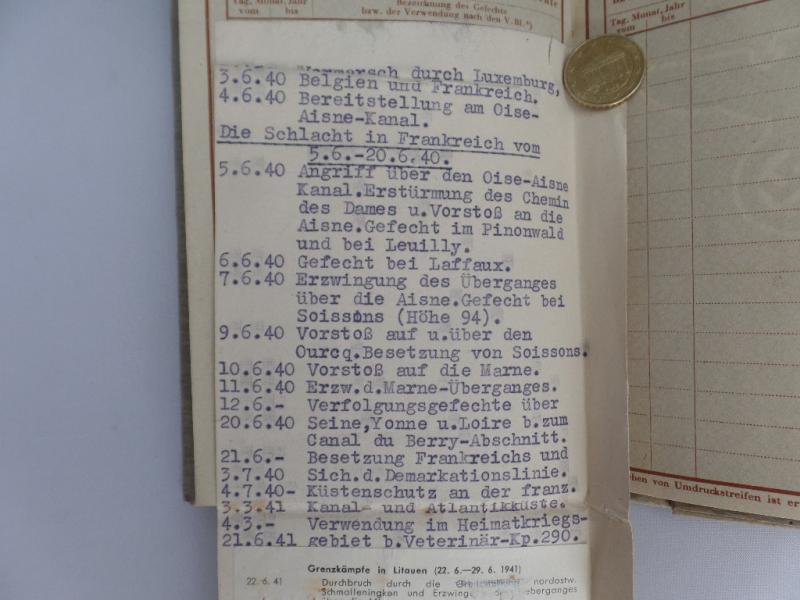 Tag, Monat, Jahr
vom bis
Bezeichnung des Gefechts
bzw. der Verwendung nach den V. Bl.*)
durch Luxemburg,
3.6.40 Belgien und Frankreich.
4.6.40 Bereitstellung am Oise-
Aisne-Kanal.
Die Schlacht in Frankreich vom
5.6.-20.6.40.
5.6.40 Angriff über den Oise-Aisne
Kanal.Erstürmung des Chemin
des Dames u.Vorstoß an die
Aisne.Gefecht im Pinonwald
und bei Leuilly.
6.6.40 Gefecht bei Laffaux.
7.6.40 Erzwingung des Überganges
über die Aisne.Gefecht bei
Soissons (Höhe 94).
9.6.40 Vorstoß auf u.über den
Ourcq.Besetzung von Soissons.
10.6.40 Vorstoß auf die Marne.
11.6.40 Erzw.d.Marne-Überganges.
12.6.- Verfolgungsgefechte über
20.6.40 Seine,Yonne u.Loire b.zum
Canal du Berry-Abschnitt.
21.6.- Besetzung Frankreichs und
3.7.40 Sich.d.Demarkationslinie.
4.7.40- Küstenschutz an der franz.
3.3.41 Kanal- und Atlantikküste.
4.3.- Verwendung im Heimatkriegs-
21.6.41 gebiet b.Veterinär-Kp.290.
Grenzkämpfe in Litauen (22. 6.—29. 6. 1941)
22. 6. 41 Durchbruch durch die nordostw.
Schmalleningken und
Tag, Monat, Jahr
vom bis
von Umdruckstreifen ist er